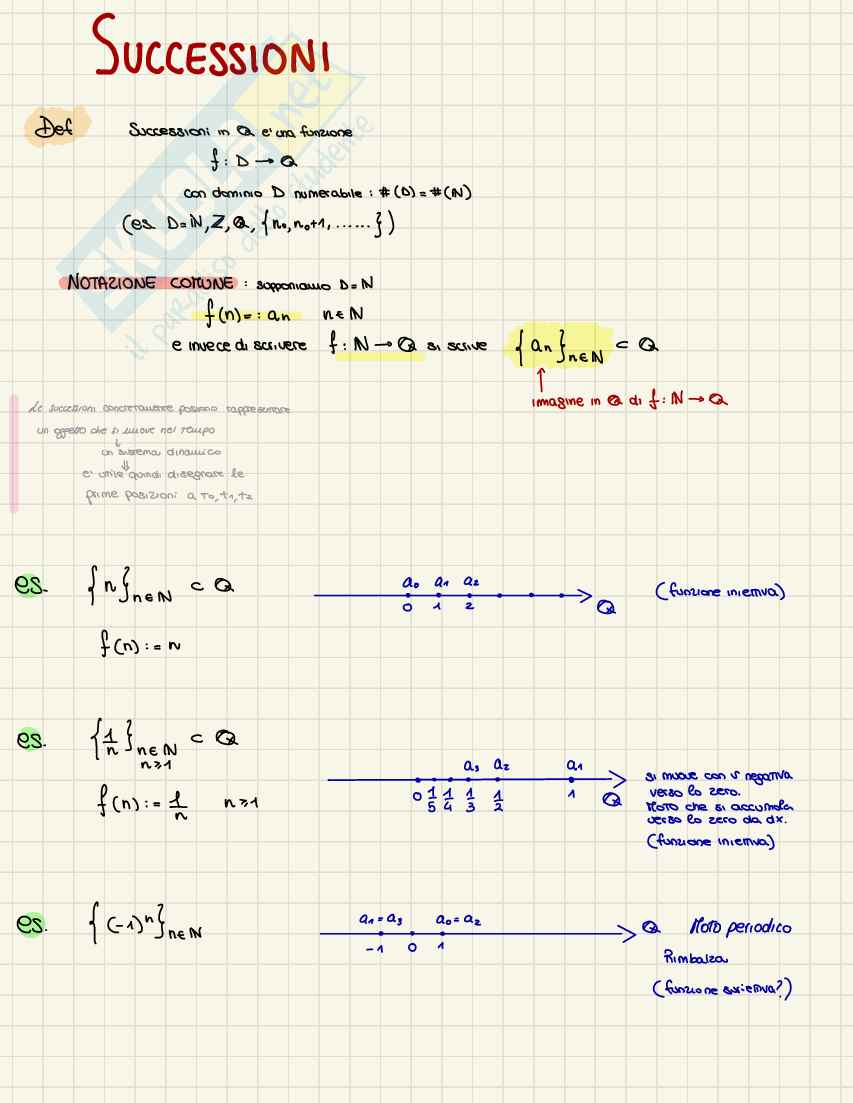 SUCCESSIONI
Def
Successioni in ℚ e' una funzione
f : D → ℚ
con dominio D numerabile : #(D) = #(ℕ)
(es. D = ℕ, ℤ, ℚ, {n₀, n₀+1, ......})
NOTAZIONE COMUNE : supponiamo D = ℕ
f(n) =: aₙ n ∈ ℕ
e invece di scrivere f : ℕ → ℚ si scrive {aₙ}n∈ℕ ⊂ ℚ
imagine in ℚ di f : ℕ → ℚ
Le successioni concretamente possono rappresentare
un oggetto che si muove nel tempo
↓
un sistema dinamico
⇓
e' utile quindi disegnare le
prime posizioni a t₀, t₁, t₂
es. {n}n∈ℕ ⊂ ℚ
a₀ a₁ a₂
0 1 2 ℚ
(funzione iniettiva)
f(n) := n
es. {1/n}n∈ℕ n≥1 ⊂ ℚ
a₃ a₂ a₁
0 1/5 1/4 1/3 1/2 1 ℚ
f(n) := 1/n n≥1
si muove con v negativa
verso lo zero.
Moto che si accumula
verso lo zero da dx.
(funzione iniettiva)
es. {(-1)ⁿ}n∈ℕ
a₁ = a₃ a₀ = a₂
-1 0 1
ℚ Moto periodico
Rimbalza
(funzione suriettiva?)
SKUOLA.net
il paradiso dello studente